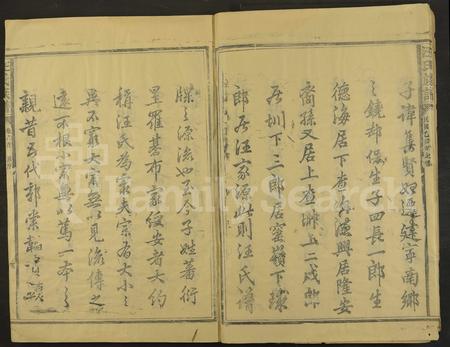 子諱雋賢如遷建寧南鄉
之鏡却保生子四長一郎生
德海居下查海德興居隆安
裔孫又居上查坳上二成郎
居圳下三郎居窑嶺下球
郎居汪家源此則汪氏譜
牒之源流也至今子姓蕃衍
星羅碁布家紋安者大約
稱汪氏為宗夫宗有大小之
異不宗大宗無以見流傳之
遠不根小宗無以篤一本之
親昔五代郭崇韜
FamilySearch